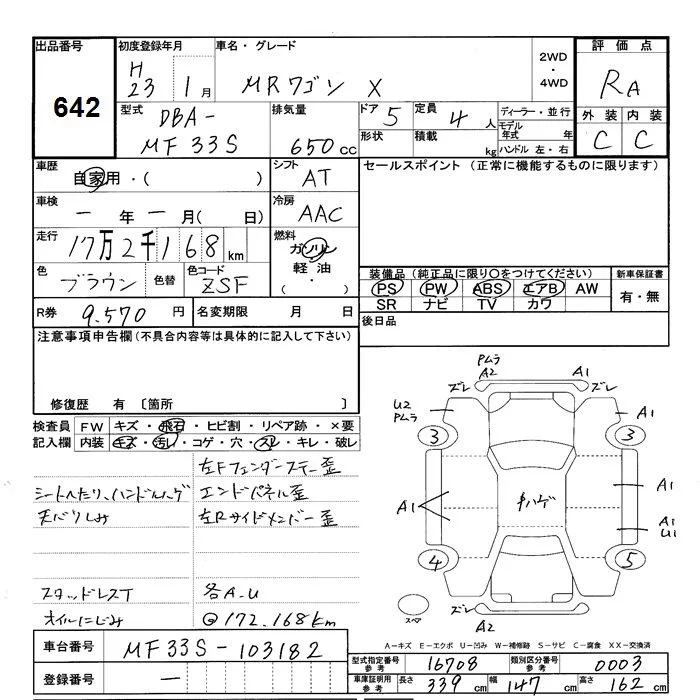 出品番号
642
初度登録年月
H23 1月
車名・グレード
MRワゴン X
2WD
・
4WD
評価点
RA
外装 内装
C C
型式
DBA-
MF33S
排気量
650cc
ドア 5
形状
定員 4人
積載 kg
ディーラー・並行
モデル年式 年
ハンドル 左・右
車歴
自家用・( )
シフト
AT
車検
一年一月( 日)
冷房
AAC
走行
17万2千168km
燃料
ガソリン
軽油
( ・ )
色
ブラウン
色替
色コード
ZSF
R券 9.570円
名変期限 月 日
セールスポイント (正常に機能するものに限ります)
装備品(純正品に限り○をつけてください)
PS PW ABS エアB AW
SR ナビ TV カワ
新車保証書
有・無
後日品
注意事項申告欄(不具合内容等は具体的に記入して下さい)
修復歴 有 〔箇所 〕
検査員記入欄
FW キズ・飛石・ヒビ割・リペア跡・×要
内装 キズ・汚レ・コゲ・穴・スレ・キレ・破レ
左Fフェンダーステー歪
シートへたり、ハンドルハゲ エンドパネル歪
天バリしみ 左Rサイドメンバー歪
スタッドレスT 各A.U
オイルにじみ @172.168km
PムラA2
A1
ズレ
ズレ
U2
Pムラ
A1
3
3
A1
A1
Pハゲ
A1
U1
4
5
スペア
ズレ
A2
A-キズ E-エクボ U-凹み W-補修跡 S-サビ C-腐食 XX-交換済
車台番号 MF33S-103182
登録番号 一
型式指定番号 参考 16708
類別区分番号 参考 0003
車庫証明用 参考 長さ 339cm 幅 147cm 高さ 162cm